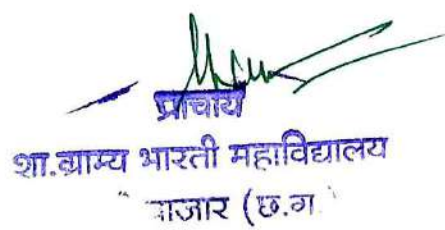 प्राचार्य
शा.ग्राम्य भारती महाविद्यालय
(छ.ग.